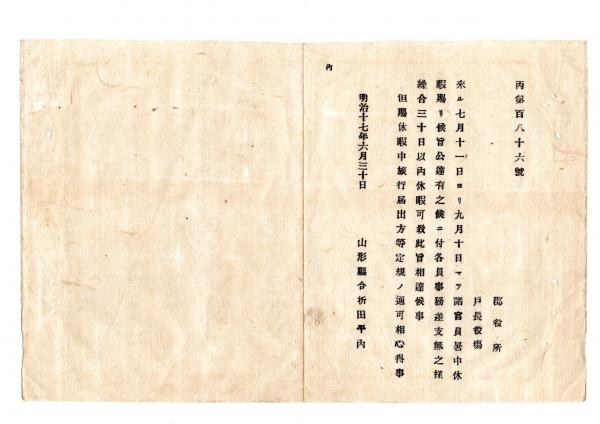 丙第百八十六號
郡役所
戸長役場
來ル七月十一日ヨリ九月十日マテ諸官員暑中休
暇賜リ候旨公達有之候ニ付各員事務差支無之樣
繰合三十日以內休暇可致此旨相達候事
但賜休暇中旅行屆出方等定規ノ通可相心得事
明治十七年六月三十日
山形縣令折田平內
內